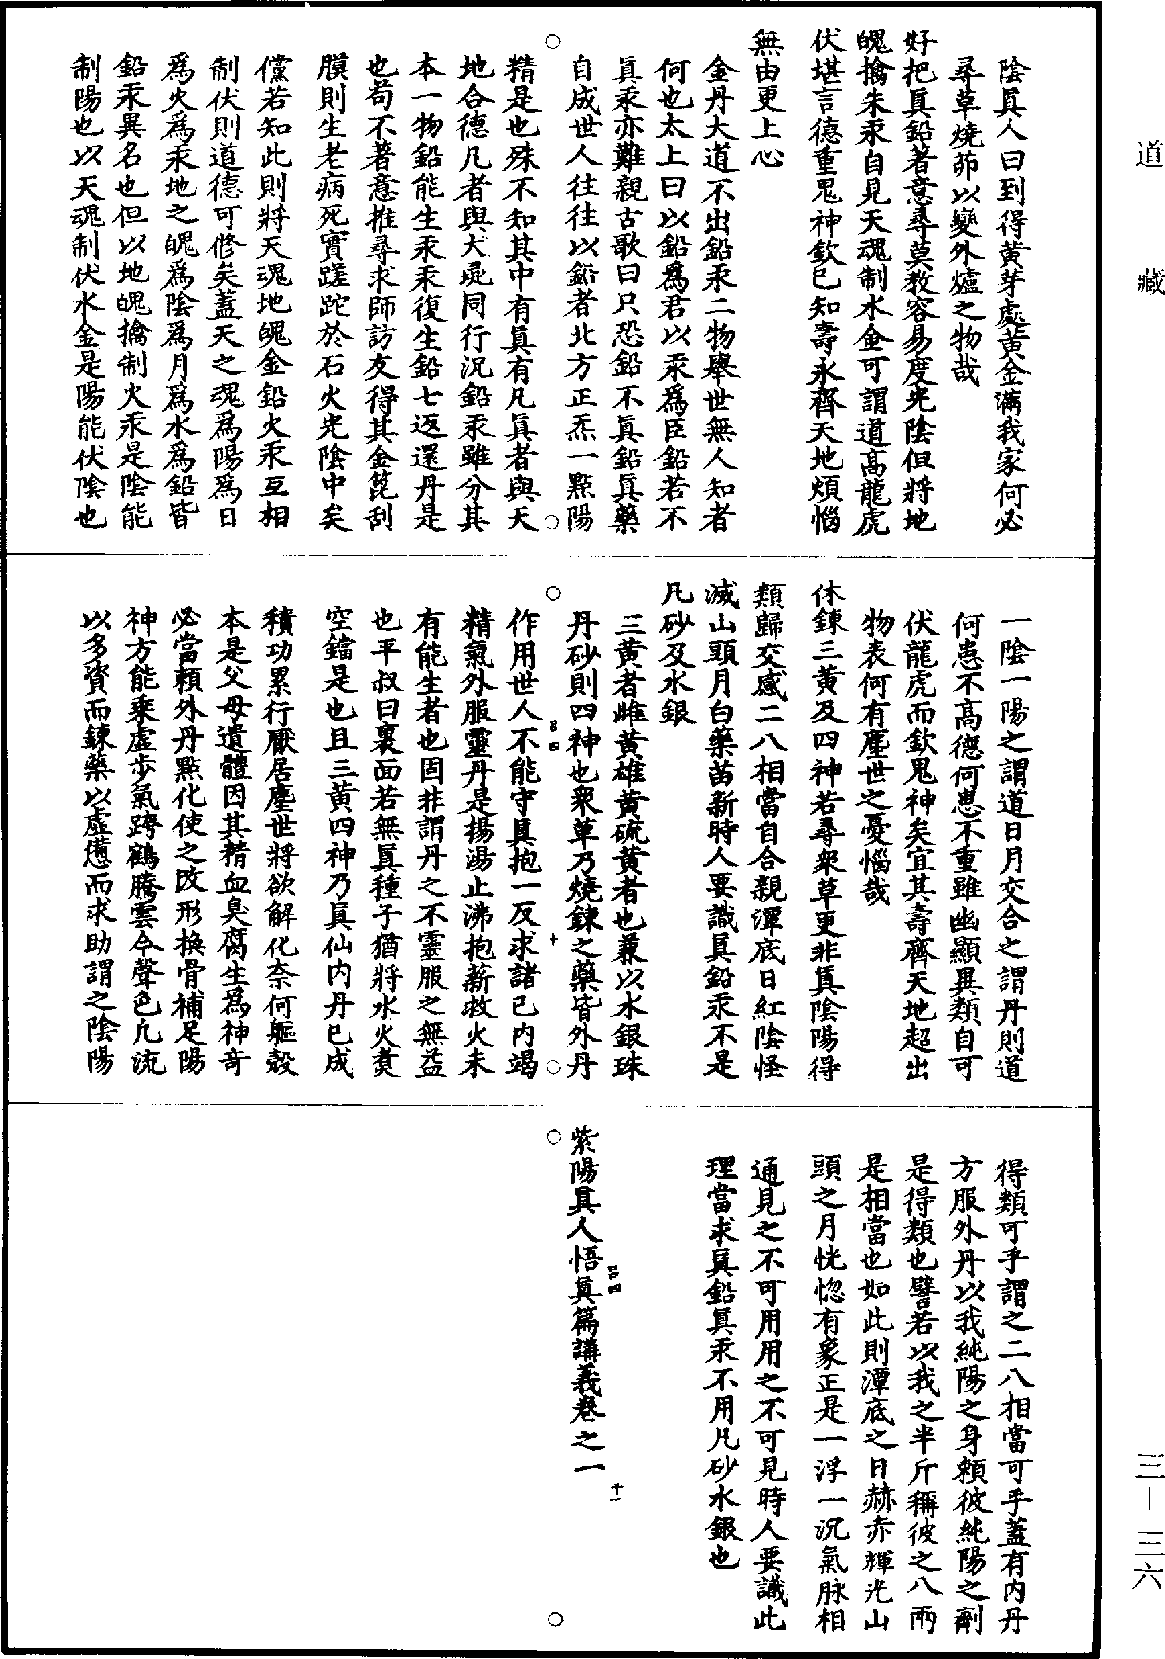 陰眞人曰到得黃芽處黃金滿我家何必
尋草燒茆以變外爐之物哉
好把眞鉛著意尋莫教容易度光陰但將地
魄擒朱汞自見天魂制水金可謂道高龍虎
伏堪言德重鬼神欽已知壽永齊天地煩惱
無由更上心
金丹大道不出鉛汞二物舉世無人知者
何也太上曰以鉛爲君以汞爲臣鉛若不
眞汞亦難親古歌曰只恐鉛不眞鉛眞藥
自成世人往往以鉛者北方正炁一點陽
精是也殊不知其中有眞有凡眞者與天
地合德凡者與犬彘同行況鉛汞雖分其
本一物鉛能生汞汞復生鉛七返還丹是
也苟不著意推尋求師訪友得其金篦刮
膜則生老病死實蹉跎於石火光陰中矣
儻若知此則將天魂地魄金鉛火汞互相
制伏則道德可修矣蓋天之魂爲陽爲日
爲火爲汞地之魄爲陰爲月爲水爲鉛皆
鉛汞異名也但以地魄擒制火汞是陰能
制陽也以天魂制伏水金是陽能伏陰也
一陰一陽之謂道日月交合之謂丹則道
何患不高德何患不重雖幽顯異類自可
伏龍虎而欽鬼神矣宜其壽齊天地超出
物表何有塵世之憂惱哉
休鍊三黃及四神若尋衆草更非眞陰陽得
類歸交感二八相當自合親潭底日紅陰怪
滅山頭月白藥苗新時人要識眞鉛汞不是
凡砂及水銀
三黃者雌黃雄黃硫黃者也兼以水銀珠
丹砂則四神也衆草乃燒鍊之藥皆外丹
呂四 十
作用世人不能守眞抱一反求諸己內竭
精氣外服靈丹是揚湯止沸抱薪救火未
有能生者也固非謂丹之不靈服之無益
也平叔曰裏面若無眞種子猶將水火煑
空鐺是也且三黃四神乃眞仙內丹已成
積功累行厭居塵世將欲解化奈何軀殼
本是父母遺體因其精血臭腐生爲神奇
必當賴外丹點化使之改形換骨補足陽
神方能乘虛步氣跨鶴騰雲今聲色凡流
以多資而鍊藥以虛憊而求助謂之陰陽
得類可乎謂之二八相當可乎蓋有內丹
方服外丹以我純陽之身賴彼純陽之劑
是得類也譬若以我之半斤稱彼之八兩
是相當也如此則潭底之日赫赤輝光山
頭之月恍惚有象正是一浮一沉氣脉相
通見之不可用用之不可見時人要識此
理當求眞鉛眞汞不用凡砂水銀也
呂四 十一
紫陽眞人悟眞篇講義卷之一
道藏
三—三六